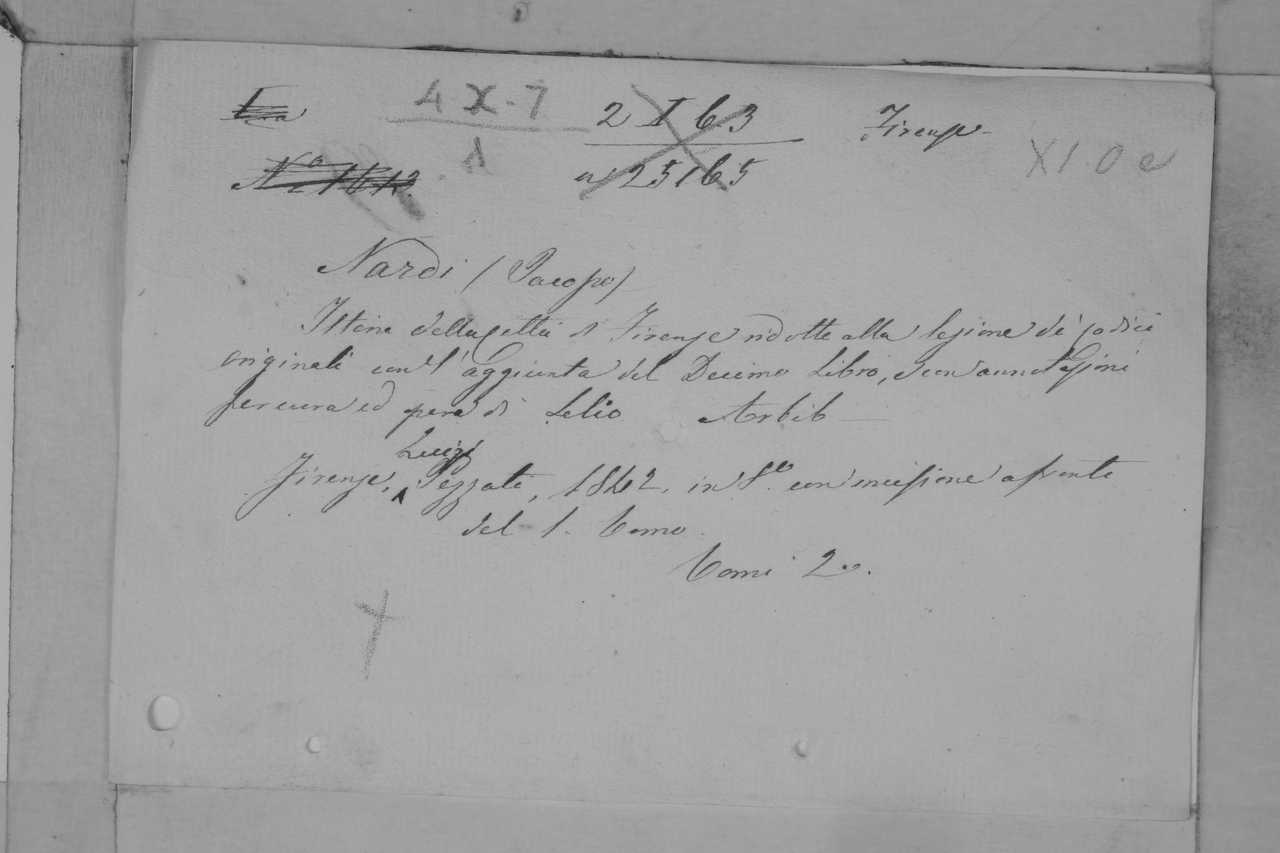 4 X. 7
1
2 I 6.3
25165
Firenze
X1. 0 e
Nº 1612.
Nardi (Jacopo)
Istoria della città di Firenze ridotte alla lezione de' codici
originali con l'aggiunta del Decimo Libro, e con annotazioni
per cura ed opera di Lelio Arbib
Luigi
Firenze, Pezzati, 1842. in 8º con incisione a fronte
del 1. Tomo.
Tomi 2.